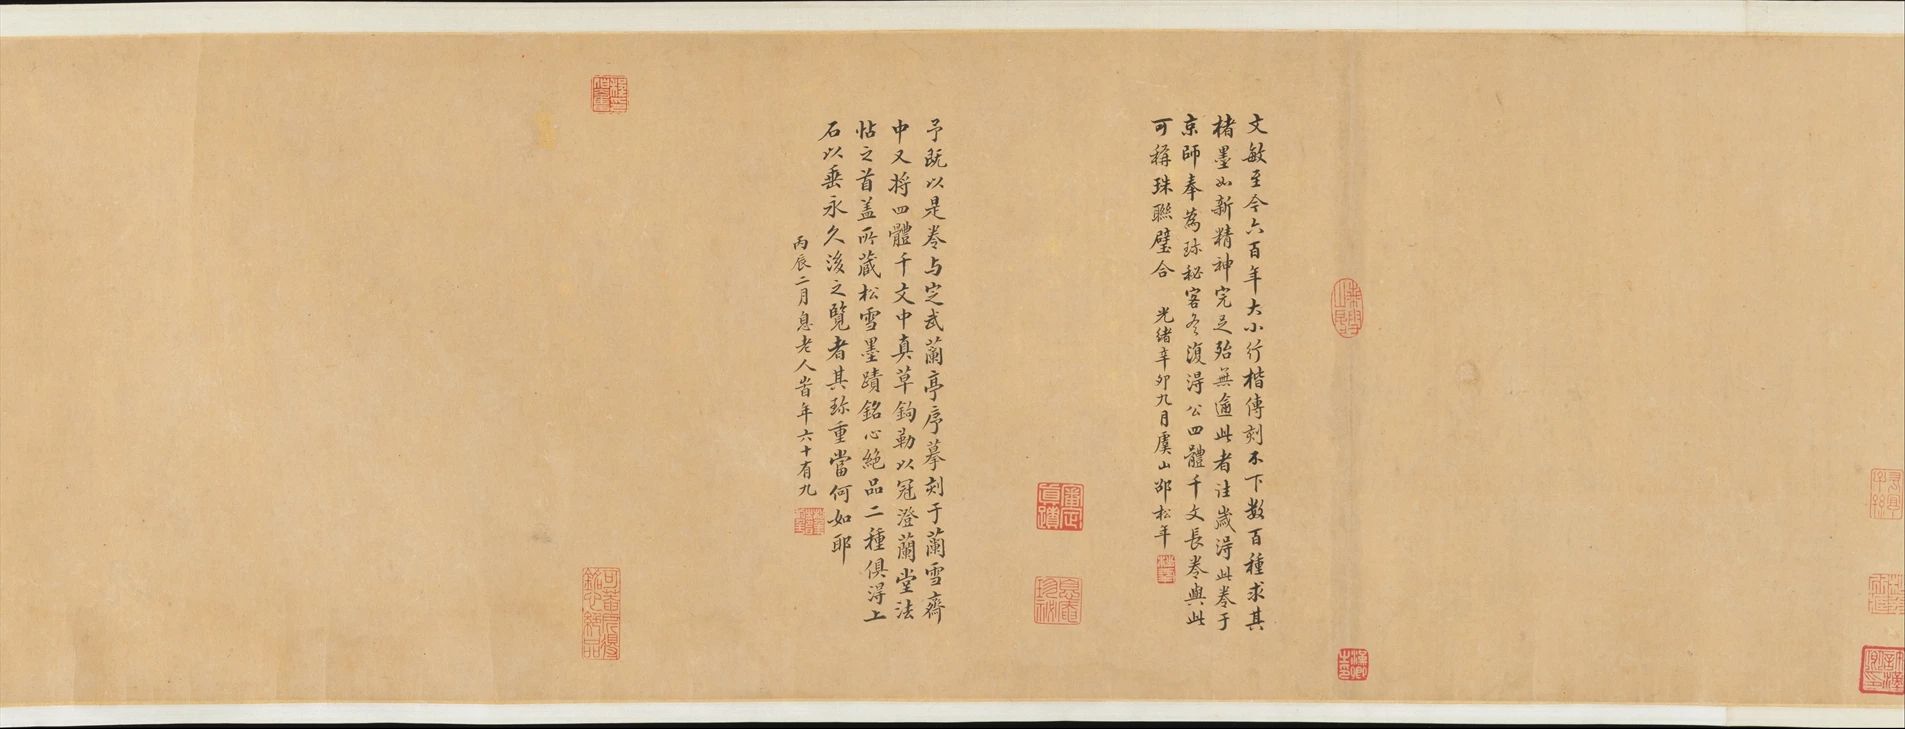 文敏至今六百年大小行楷傳刻不下數百種求其
楮墨如新精神完足殆無逾此者往歲得此卷于
京師奉為珍秘客冬復得公四體千文長卷與此
可稱珠聯璧合 光緒辛卯九月虞山邵松年
予既以是卷与定武蘭亭序摹刻于蘭雪齋
中又將四體千文中真草鉤勒以冠澄蘭堂法
帖之首盖所藏松雪墨蹟銘心絕品二種俱得上
石以垂永久後之覽者其珍重當何如耶
丙辰二月息老人峕年六十有九
審定真蹟
息盦珍祕